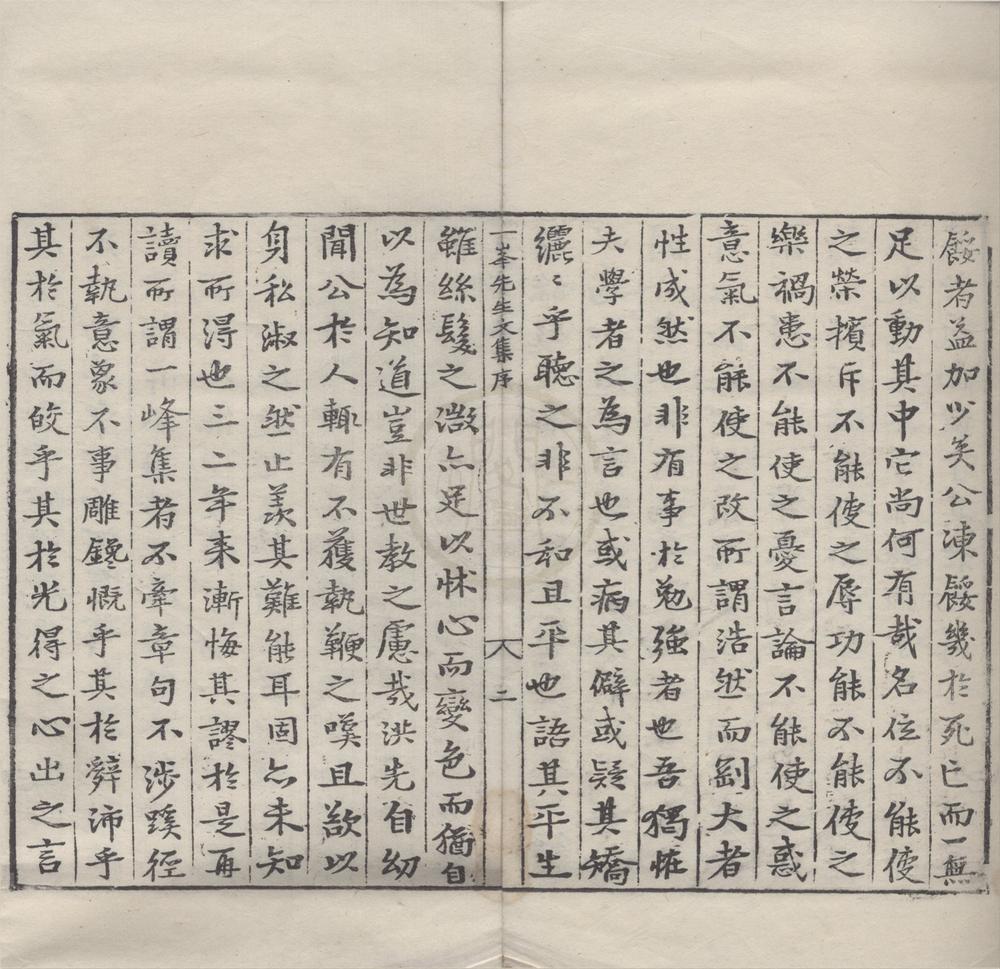 餒者益加少矣公凍餒幾於死亡而一無
足以動其中它尚何有哉名位不能使
之榮擯斥不能使之辱功能不能使之
樂禍患不能使之憂言論不能使之惑
意氣不能使之改所謂浩然而剛大者
性成然也非有事於勉強者也吾獨恠
夫學者之為言也或病其僻或疑其矯
纚〻乎聽之非不和且平也語其平生
一峯先生文集序
二
雖絲髮之微亦足以怵心而變色而猶自
以為知道豈非世教之慮哉洪先自幼
聞公於人輒有不獲執鞭之嘆且欲以
身私淑之然止羨其難能耳固亦未知
求所得也三二年来漸悔其謬於是再
讀所謂一峰集者不牽章句不涉蹊徑
不執意象不事雕鑱慨乎其於辭沛乎
其於氣而皎乎其於光得之心出之言